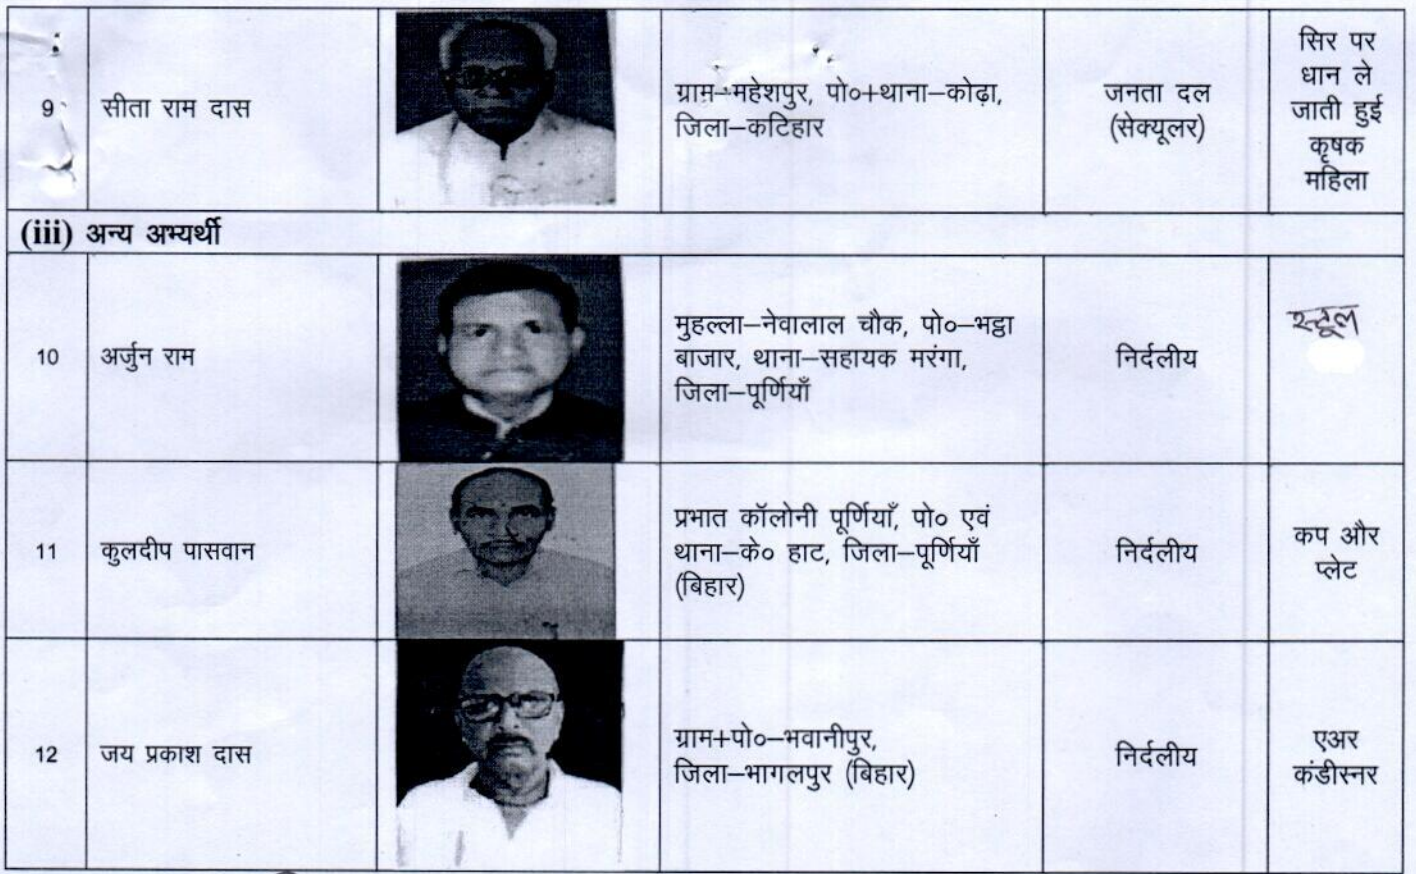 9
सीता राम दास
ग्राम–महेशपुर, पो०+थाना–कोढ़ा,
जिला–कटिहार
जनता दल
(सेक्यूलर)
सिर पर
धान ले
जाती हुई
कृषक
महिला
(iii) अन्य अभ्यर्थी
10
अर्जुन राम
मुहल्ला–नेवालाल चौक, पो०–भट्ठा
बाजार, थाना–सहायक मरंगा,
जिला–पूर्णियाँ
निर्दलीय
स्टूल
11
कुलदीप पासवान
प्रभात कॉलोनी पूर्णियाँ, पो० एवं
थाना–के० हाट, जिला–पूर्णियाँ
(बिहार)
निर्दलीय
कप और
प्लेट
12
जय प्रकाश दास
ग्राम+पो०–भवानीपुर,
जिला–भागलपुर (बिहार)
निर्दलीय
एअर
कंडीस्नर